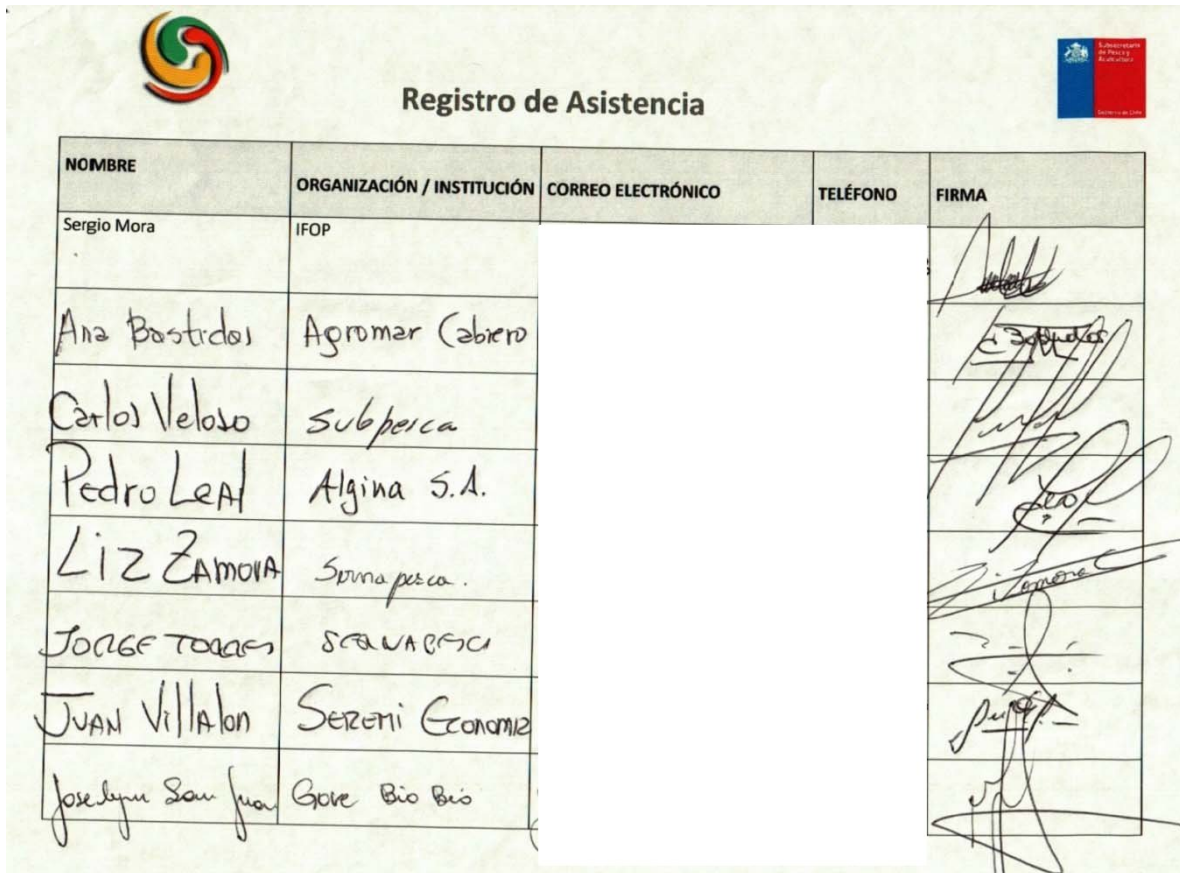 Subsecretaría de Pesca y Acuicultura
Gobierno de Chile
Registro de Asistencia
NOMBRE ORGANIZACIÓN / INSTITUCIÓN CORREO ELECTRÓNICO TELÉFONO FIRMA
Sergio Mora IFOP
Ana Bastidas Agromar Cabrero
Carlos Veloso Subpesca
Pedro Leal Algina S.A.
Liz Zamora Sernapesca.
JORGE TORRES SERNAPESCA
JUAN VillAlon SEREMI Economia
Joselynn San Juan Gore Bio Bio